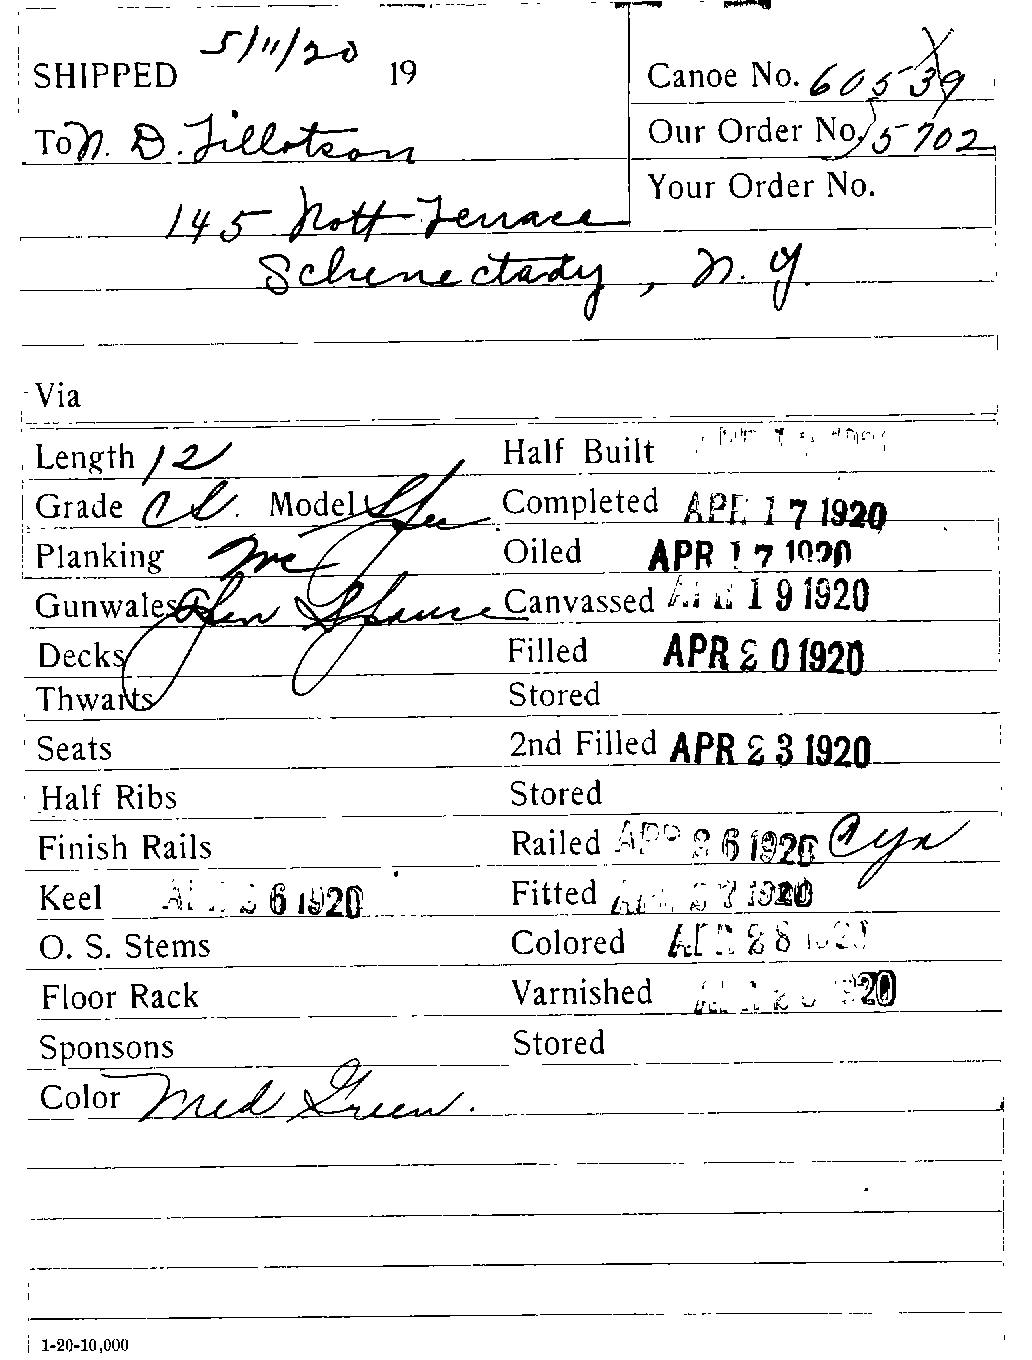 SHIPPED 5/11/20 19
Canoe No. 60539
To N. D. Tillotson
Our Order No. 15702
Your Order No.
145 Nott Terrace
Schenectady, N. Y.
Via
Length 12 Half Built
Grade CS. Model Completed APR 17 1920
Planking Oiled APR 17 1920
Gunwales Open Spruce Canvassed APR 19 1920
Decks Filled APR 20 1920
Thwarts Stored
Seats 2nd Filled APR 23 1920
Half Ribs Stored
Finish Rails Railed APR 26 1920
Keel APR 26 1920 Fitted APR 27 1920
O. S. Stems Colored APR 28 1920
Floor Rack Varnished 1920
Sponsons Stored
Color Med Green.
1-20-10,000